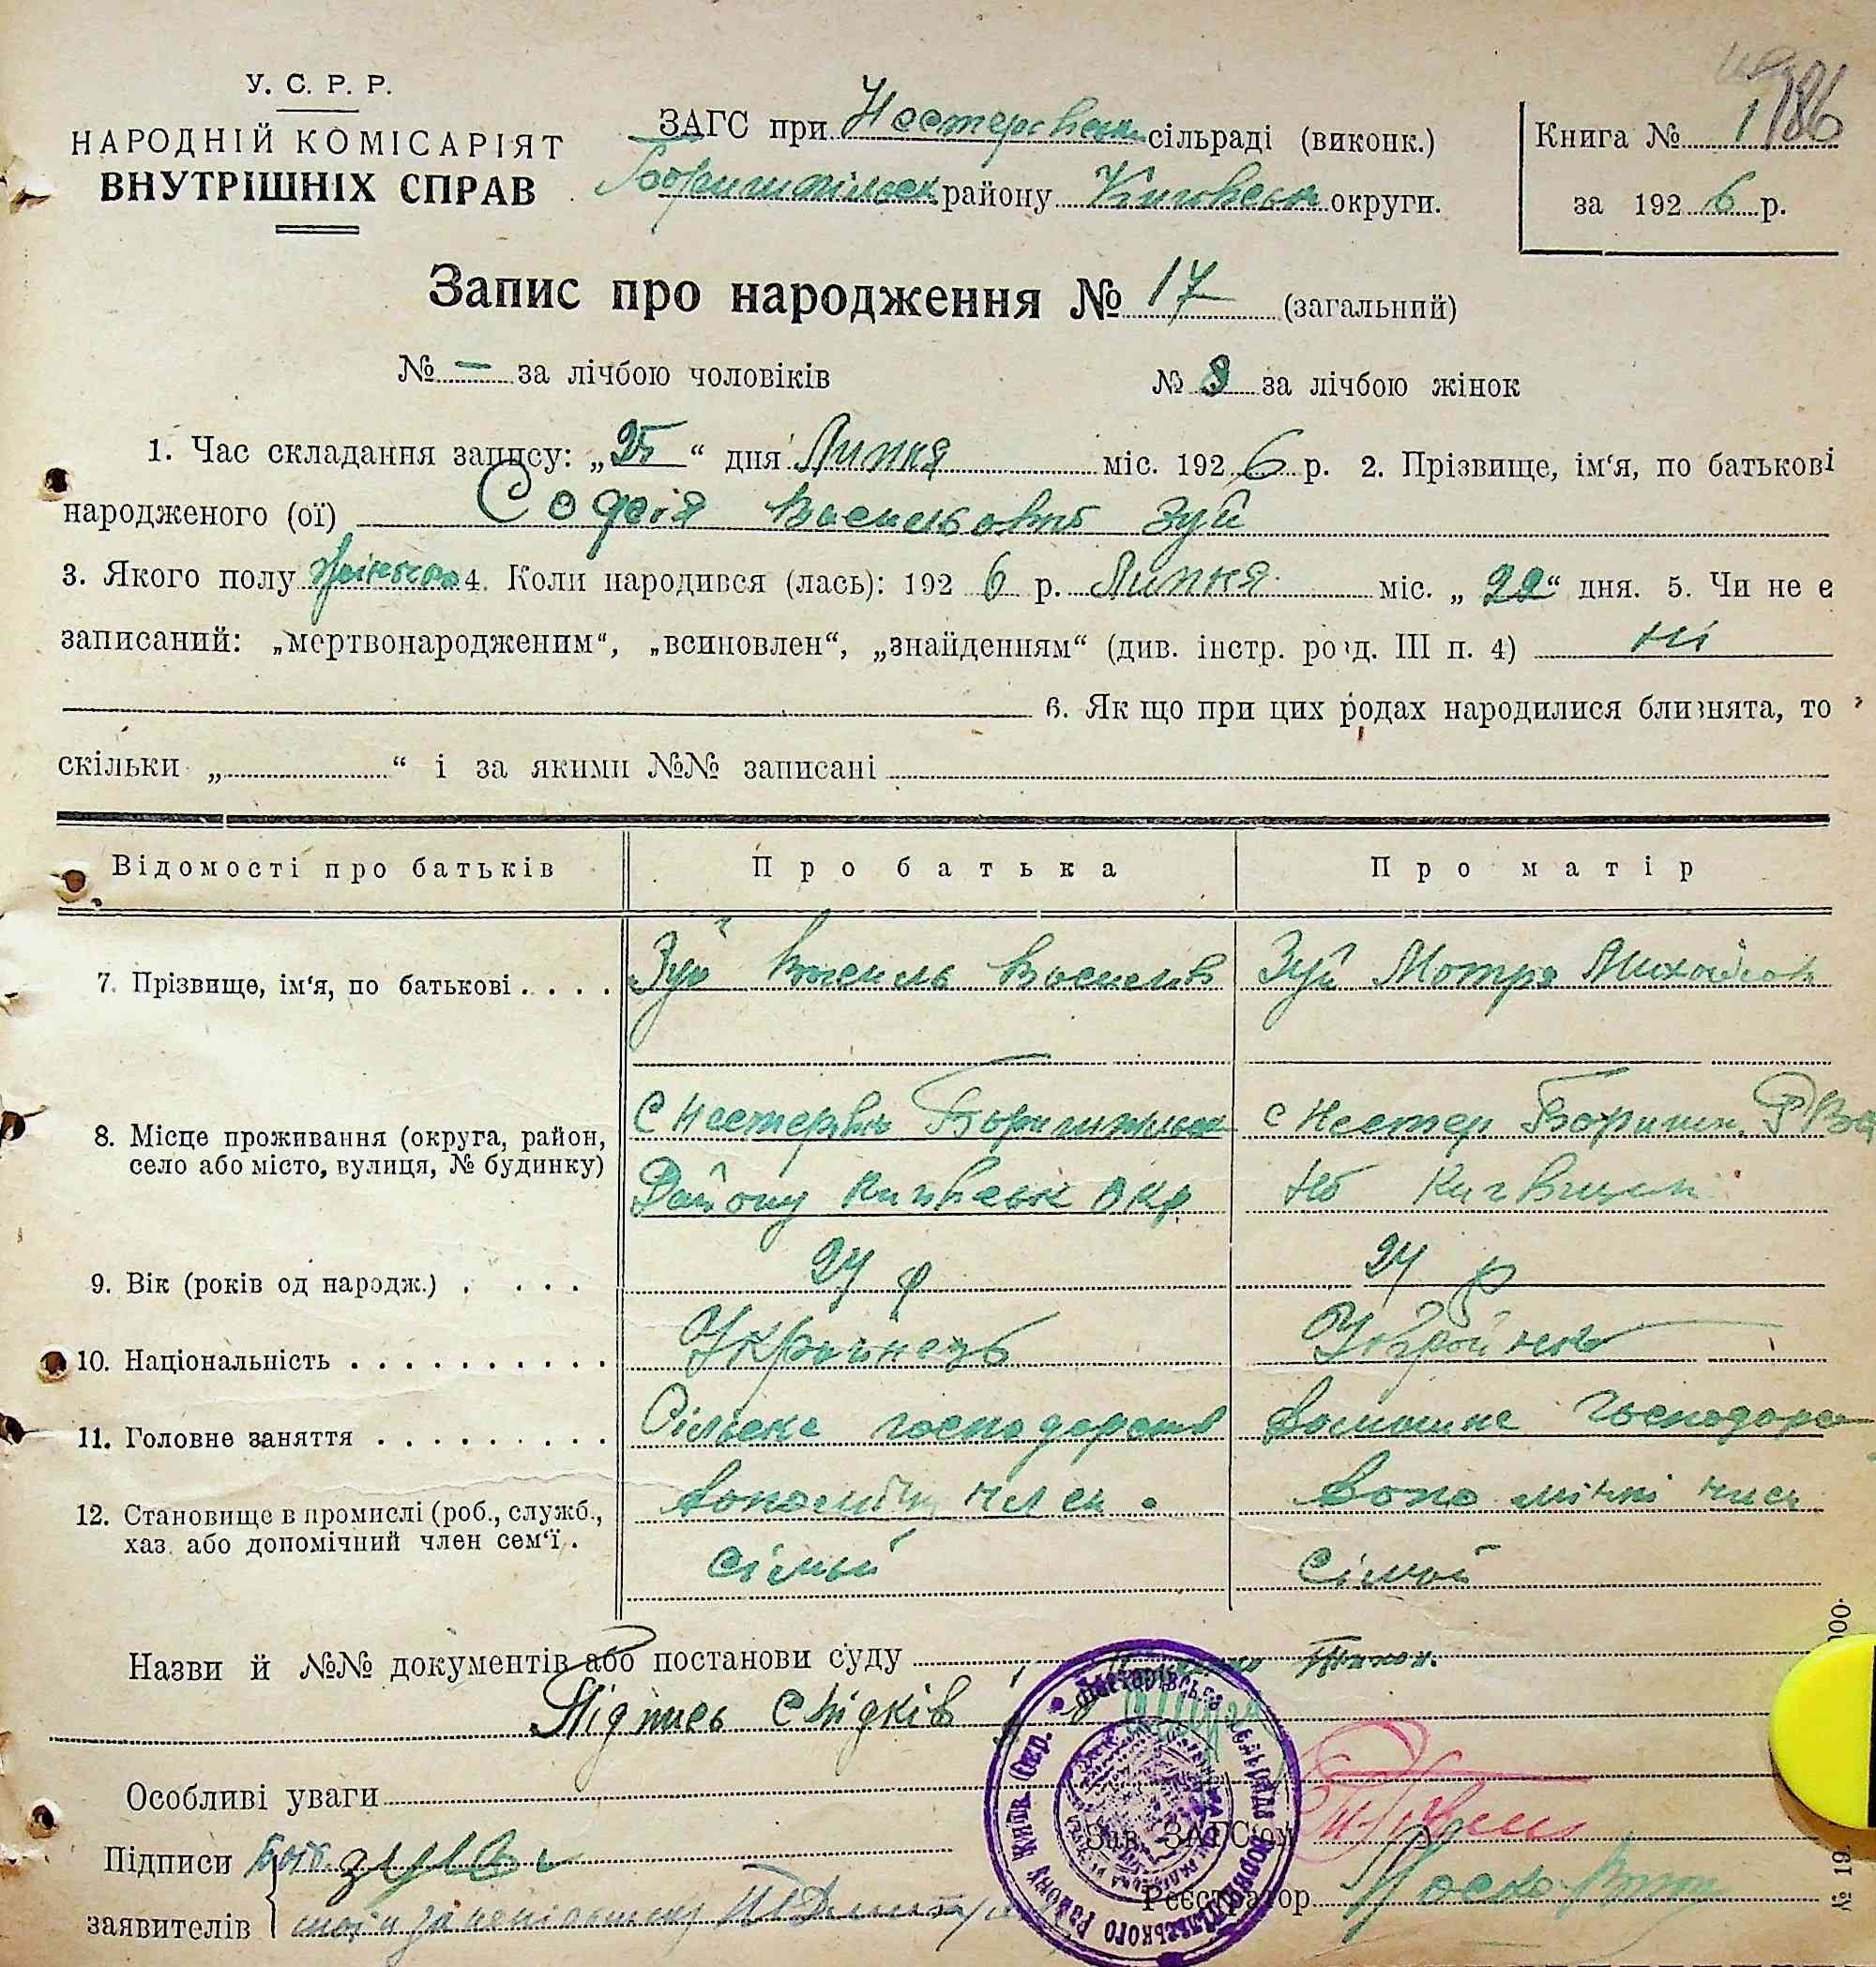 186
У. С. Р. Р.
НАРОДНІЙ КОМІСАРІЯТ
ВНУТРІШНІХ СПРАВ
ЗАГС при Нестерівськ сільраді (виконк.)
Боришпільськ району Київськ округи.
Книга № 1
за 1926 р.
Запис про народження № 17 (загальний)
№ — за лічбою чоловіків № 8 за лічбою жінок
1. Час складання запису: „25“ дня Липня міс. 1926 р. 2. Прізвище, ім‘я, по батькові
народженого (ої) Софія Васильовна Зуй
3. Якого полу жіноча 4. Коли народився (лась): 1926 р. Липня міс. „22“ дня. 5. Чи не є
записаний: „мертвонародженим“, „всиновлен“, „знайденням“ (див. інстр. розд. III п. 4) ні
6. Як що при цих родах народилися близнята, то
скільки „ “ і за якими №№ записані
Відомості про батьків Про батька Про матір
7. Прізвище, ім‘я, по батькові . . . . Зуй Василь Васильов Зуй Мотря Михайлов
8. Місце проживання (округа, район, село або місто, вулиця, № будинку) С Нестерівка Боришпільськ с Нестер Боришп. Р
Району Київськ Окр на Київщин
9. Вік (років од народж.) . . . . 24 р 24 р
10. Національність . . . . . . . . . . . Українець Українка
11. Головне заняття . . . . . . . . . . Сільске господарств домашне Господарс
12. Становище в промислі (роб., служб., хаз. або допомічний член сем‘ї . допомічн член допо мічні член
сімьи Сімои
Назви й №№ документів або постанови суду
Підпись Свідків
Особливі уваги
Зав. ЗАГС‘ом
Підписи
заявителів
Реєстратор